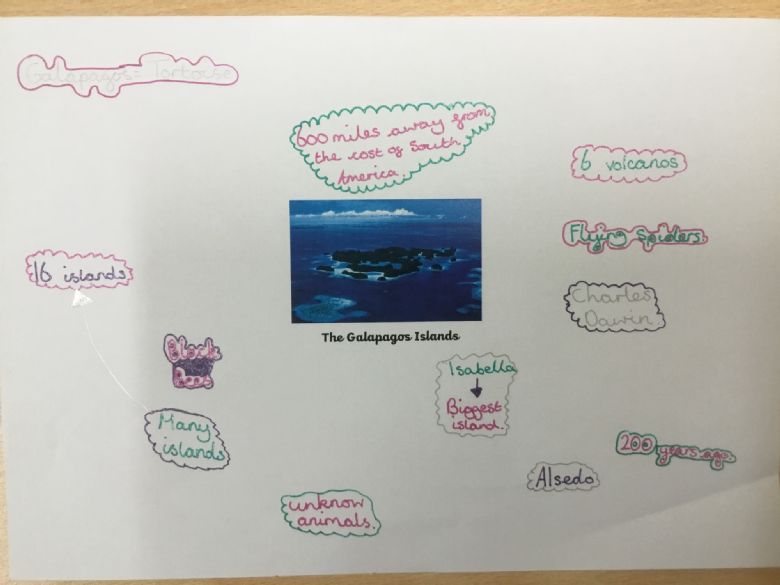 Galapagos = Tortoise
600 miles away from
the cost of South
America.
6 volcanos
Flying Spiders.
16 islands
Charles
Dawin.
The Galapagos Islands
Black
Bees
Isabella
Biggest
island.
Many
islands
200 years ago.
Alsedo
unknow
animals.